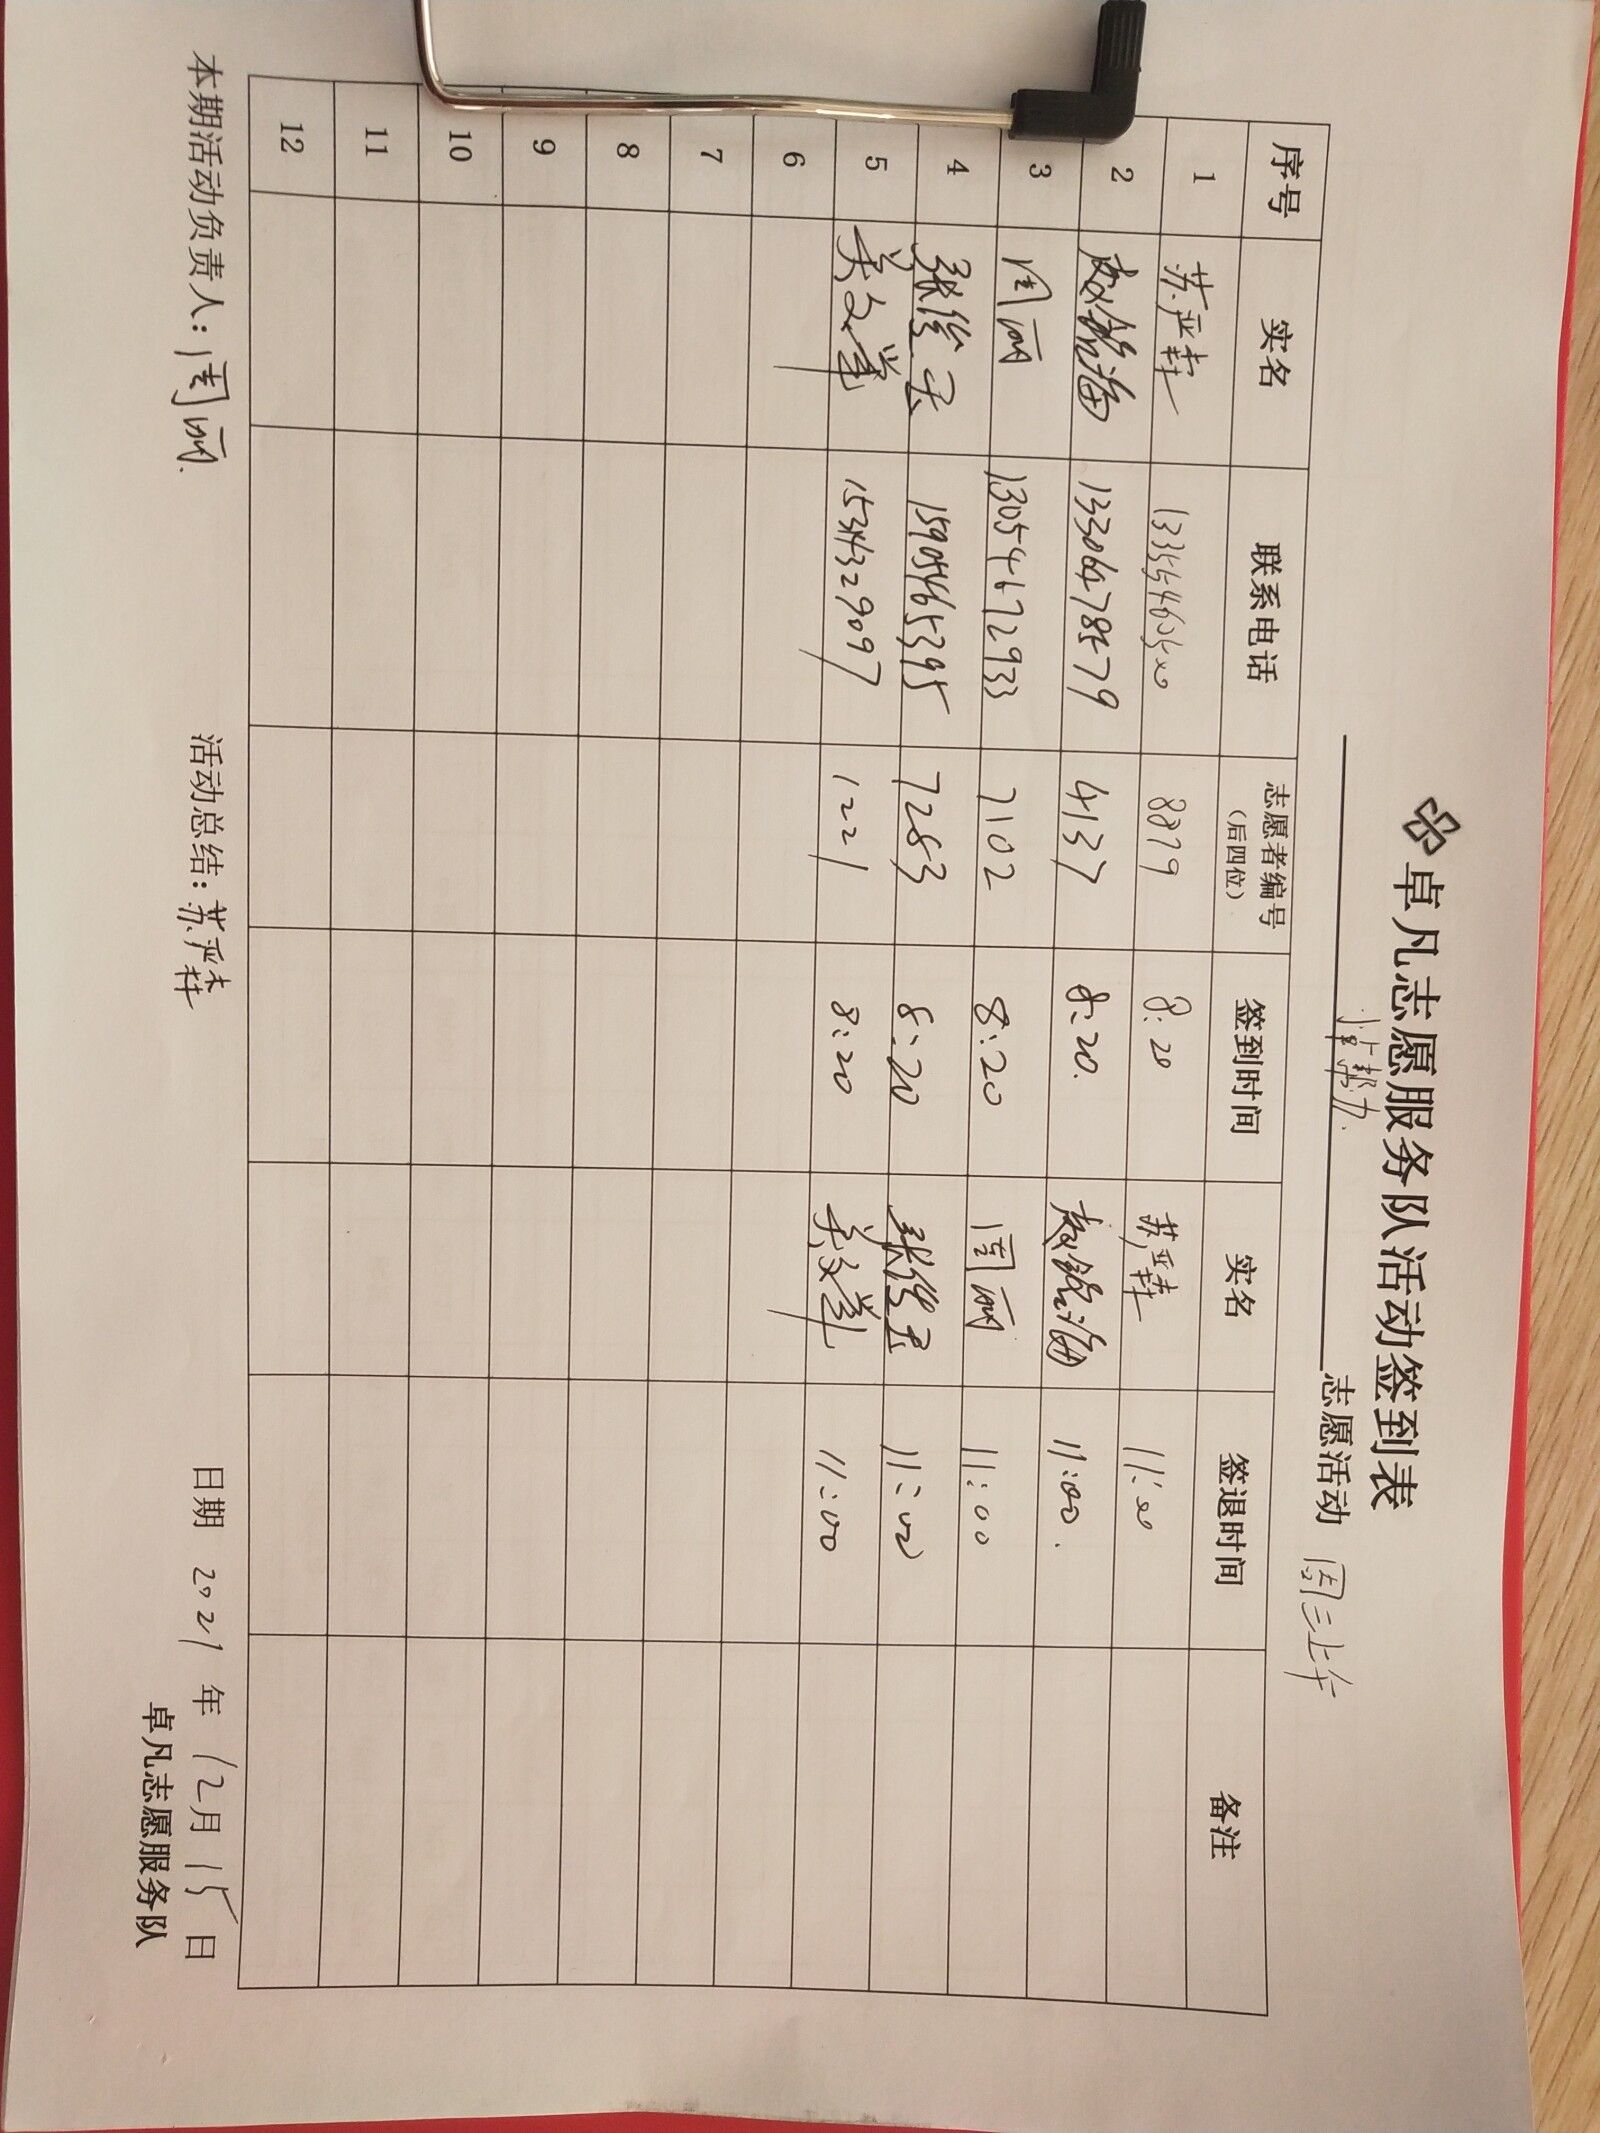 卓凡志愿服务队活动签到表
志愿活动 周三上午
序号 实名 联系电话 志愿者编号（后四位） 签到时间 实名 签退时间 备注
1 苏严梓 8879 8:20 苏严梓 11:00
2 13306478579 4137 8:20. 11:00.
3 周丽 13054672933 7102 8:20 周丽 11:00
4 15905465395 7283 8:20 11:00
5 15314329097 1221 8:20 11:00
6
7
8
9
10
11
12
本期活动负责人：周丽. 活动总结：苏严梓 日期 2021 年 12月 15日
卓凡志愿服务队